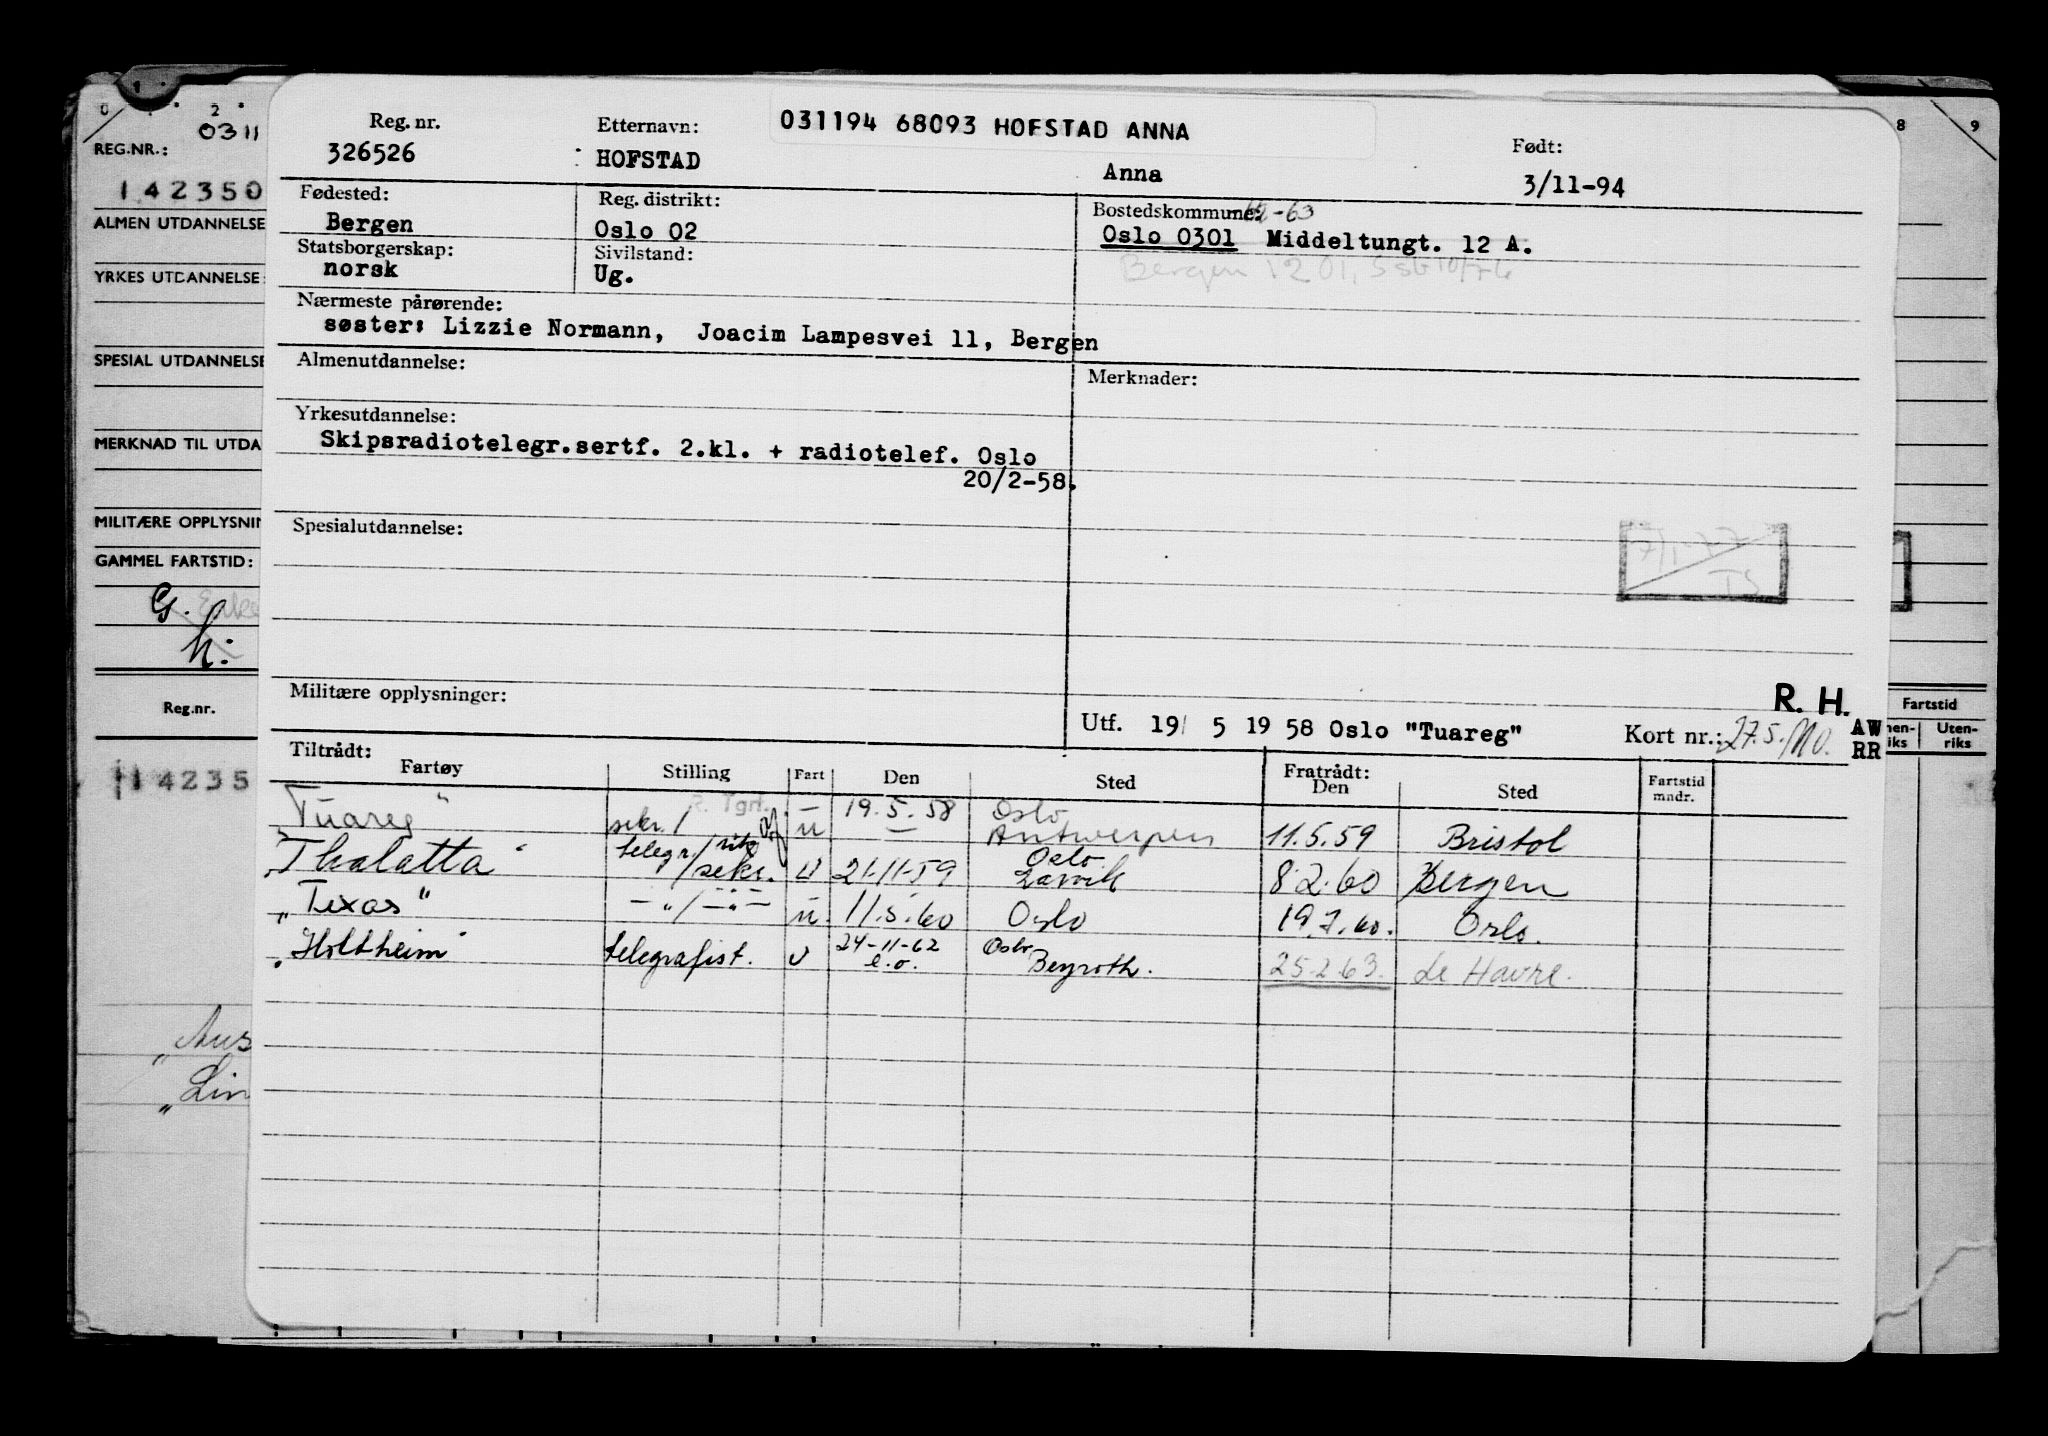 031194 68093 HOFSTAD ANNA
Reg. nr. Etternavn: Født:
326526 HOFSTAD Anna 3/11-94
Fødested: Reg. distrikt: Bostedskommune: -63
Bergen Oslo 02 Oslo 0301 Middeltungt. 12 A.
Statsborgerskap: Sivilstand: Bergen 1201,
norsk Ug.
Nærmeste pårørende:
søster: Lizzie Normann, Joacim Lampesvei 11, Bergen
Almenutdannelse: Merknader:
Yrkesutdannelse:
Skipsradiotelegr.sertf. 2.kl. + radiotelef. Oslo
20/2-58.
Spesialutdannelse:
TS
Militære opplysninger:
R. H.
Utf. 19/ 5 19 58 Oslo "Tuareg" Kort nr.: 27.5. AW
RR
Tiltrådt: Fratrådt:
Fartøy Stilling Fart Den Sted Den Sted Fartstid mndr.
Tuareg" sekr./ R. Tgrf. u 19.5.58 Oslo Antwerpen 11.5.59 Bristol
"Thalatta" telegr/sekr. u 21-11-59 Oslo Larvik 8.2.60 Bergen
"Texas" — " / — " — u. 11.5.60 Oslo 19.7.60. Oslo.
"Holtheim" telegrafist. u 24-11-62 e.o. Oslo Beyroth. 25.2.63. Le Havre.
0 1 2 8 9
0311
REG.NR.:
142350
ALMEN UTDANNELSE
YRKES UTDANNELSE:
SPESIAL UTDANNELSE
MERKNAD TIL UTDA
MILITÆRE OPPLYSNIN
GAMMEL FARTSTID:
G.
h.
Reg.nr.
14235
"Aus
"Lin
Fartstid
nen-
iks
Uten-
riks